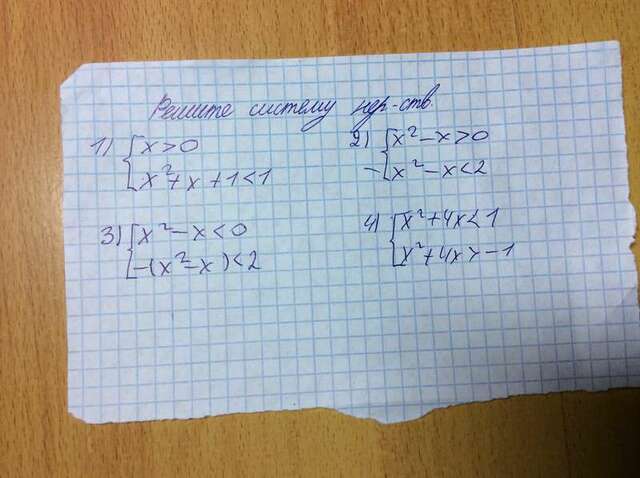 Решите систему нер-ств.
1) { x > 0
x² + x + 1 < 1
2) { x² - x > 0
x² - x < 2
3) { x² - x < 0
-(x² - x) < 2
4) { x² + 4x < 1
x² + 4x > -1